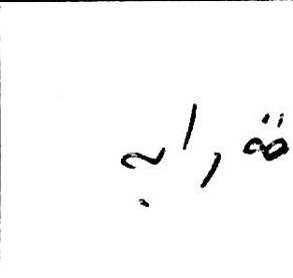 قرابه